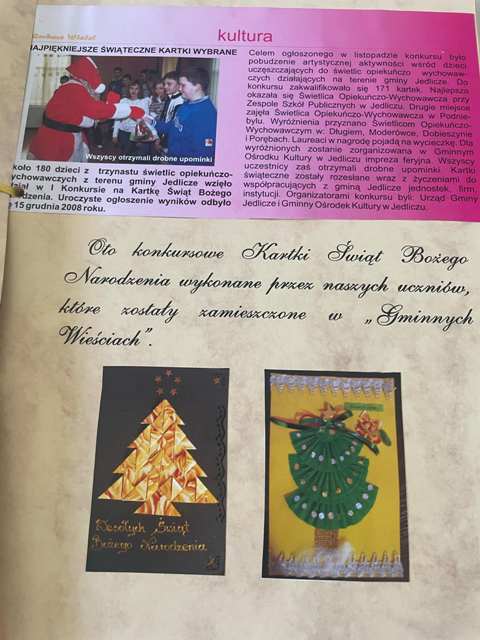 kultura
NAJPIĘKNIEJSZE ŚWIĄTECZNE KARTKI WYBRANE
Wszyscy otrzymali drobne upominki
koło 180 dzieci z trzynastu świetlic opiekuńczo-
ychowawczych z terenu gminy Jedlicze wzięło
dział w I Konkursie na Kartkę Świąt Bożego
rodzenia. Uroczyste ogłoszenie wyników odbyło
15 grudnia 2008 roku.
Celem ogłoszonego w listopadzie konkursu było
pobudzenie artystycznej aktywności wśród dzieci
uczęszczających do świetlic opiekuńczo wychowaw-
czych działających na terenie gminy Jedlicze. Do
konkursu zakwalifikowało się 171 kartek. Najlepsza
okazała się Świetlica Opiekuńczo-Wychowawcza przy
Zespole Szkół Publicznych w Jedliczu. Drugie miejsce
zajęła Świetlica Opiekuńczo-Wychowawcza w Podnie-
bylu. Wyróżnienia przyznano Świetlicom Opiekuńczo-
Wychowawczym w: Długiem, Moderówce, Dobieszynie
i Porębach. Laureaci w nagrodę pojadą na wycieczkę. Dla
wyróżnionych zostanie zorganizowana w Gminnym
Ośrodku Kultury w Jedliczu impreza feryjna. Wszyscy
uczestnicy zaś otrzymali drobne upominki Kartki
świąteczne zostały rozesłane wraz z życzeniami do
współpracujących z gminą Jedlicze jednostek, firm,
instytucji. Organizatorami konkursu byli: Urząd Gminy
Jedlicze i Gminny Ośrodek Kultury w Jedliczu.
Oto konkursowe Kartki Świąt Bożego
Narodzenia wykonane przez naszych uczniów,
które zostały zamieszczone w „Gminnych
Wieściach”.
Wesołych Świąt
Bożego Narodzenia